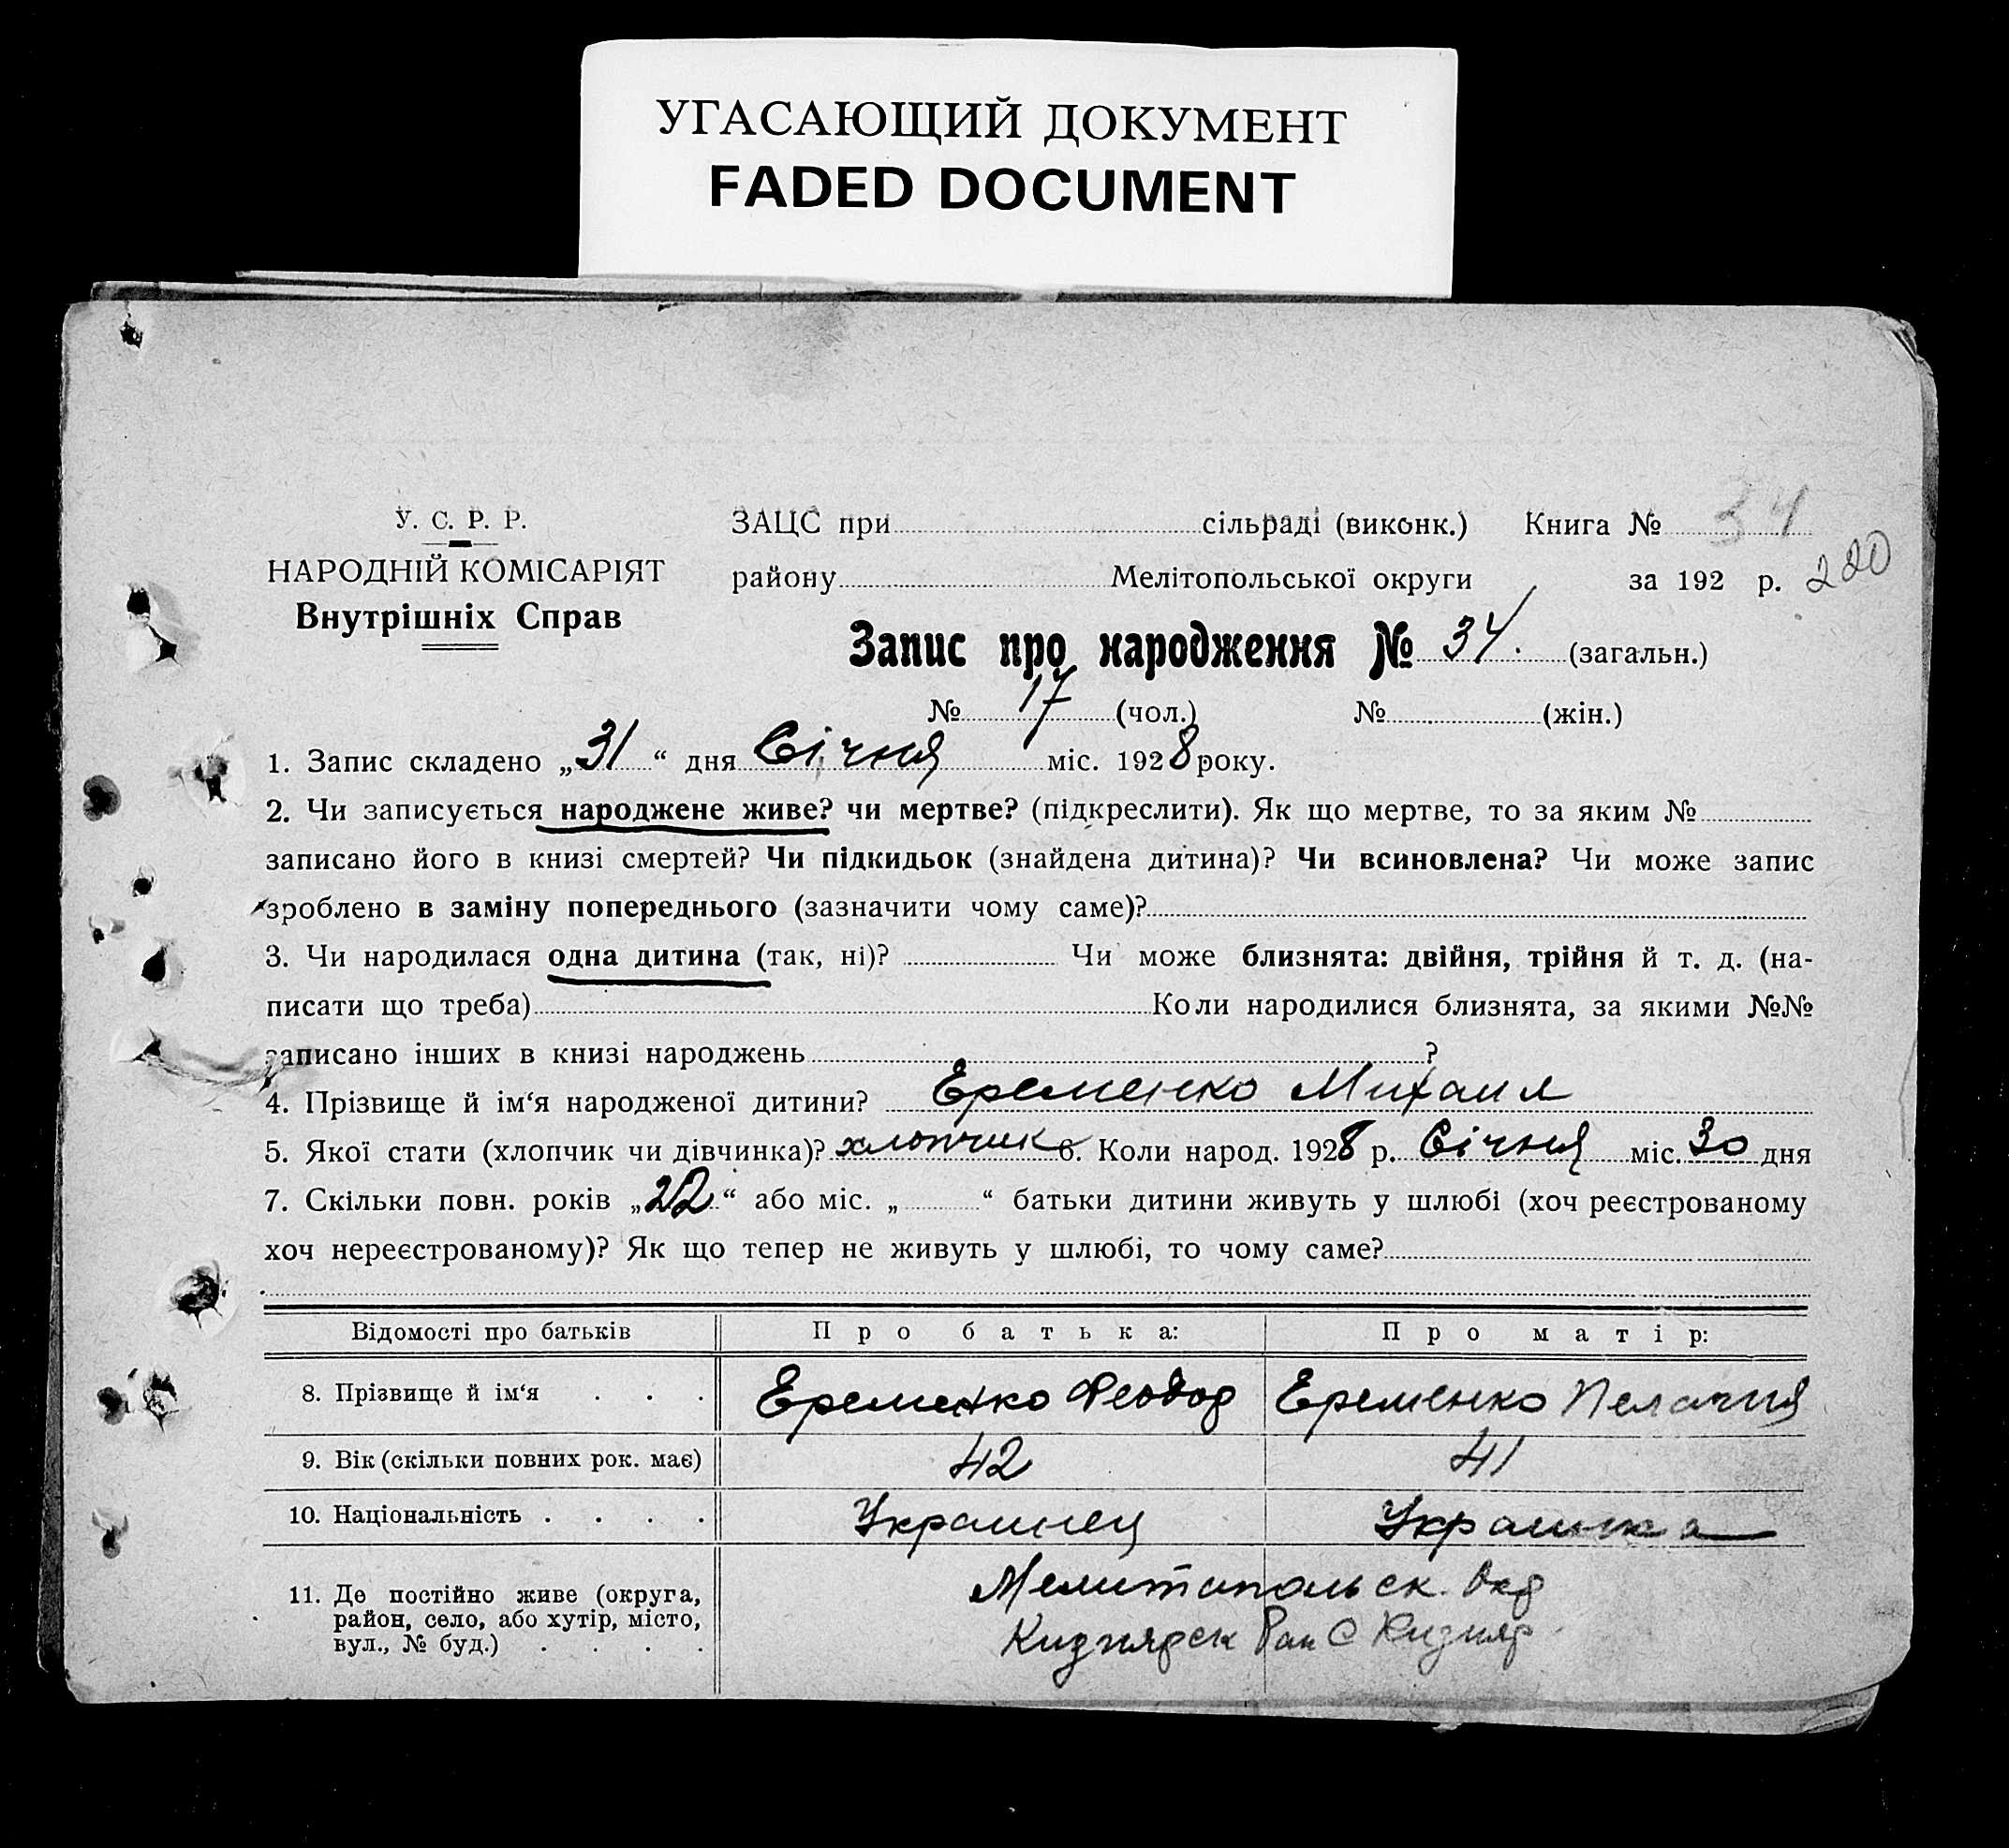 УГАСАЮЩИЙ ДОКУМЕНТ
FADED DOCUMENT
У. С. Р. Р.
НАРОДНІЙ КОМІСАРІЯТ
Внутрішніх Справ
ЗАЦС при сільраді (виконк.) Книга № 34
району Мелітопольської округи за 192 р. 220
Запис про народження № 34. (загальн.)
№ 17 (чол.) № (жін.)
1. Запис складено „31“ дня Січня міс. 1928 року.
2. Чи записується народжене живе? чи мертве? (підкреслити). Як що мертве, то за яким №
записано його в книзі смертей? Чи підкидьок (знайдена дитина)? Чи всиновлена? Чи може запис
зроблено в заміну попереднього (зазначити чому саме)?
3. Чи народилася одна дитина (так, ні)? Чи може близнята: двійня, трійня й т. д. (на-
писати що треба) Коли народилися близнята, за якими №№
записано інших в книзі народжень ?
4. Прізвище й ім‘я народженої дитини? Еременко Михаил
5. Якої стати (хлопчик чи дівчинка)? хлопчик 6. Коли народ. 1928 р. Січня міс. 30 дня
7. Скільки повн. років „22“ або міс. „ “ батьки дитини живуть у шлюбі (хоч реєстрованому
хоч нереєстрованому)? Як що тепер не живуть у шлюбі, то чому саме?
Відомості про батьків Про батька: Про матір:
8. Прізвище й ім‘я . . . Еременко Феодор Еременко Пелагия
9. Вік (скільки повних рок. має) 42 41
10. Національність . . . . Украинец Украинка
11. Де постійно живе (округа,
район, село, або хутір, місто,
вул., № буд.) . . . .
Мелитопольск. Окр
Кизиярск Рай С Кизияр.